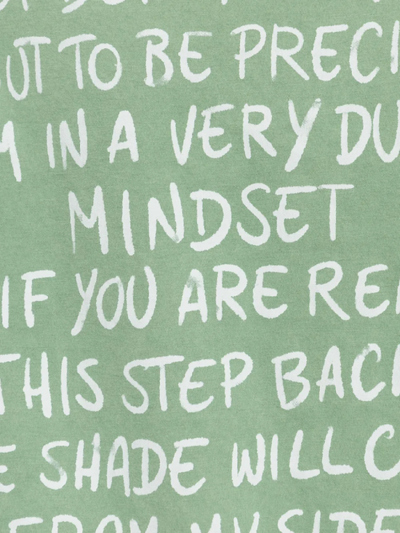 BUT TO BE PRECI
M IN A VERY DU
MINDSET
IF YOU ARE REA
THIS STEP BACK
E SHADE WILL C
FROM MY SIDE